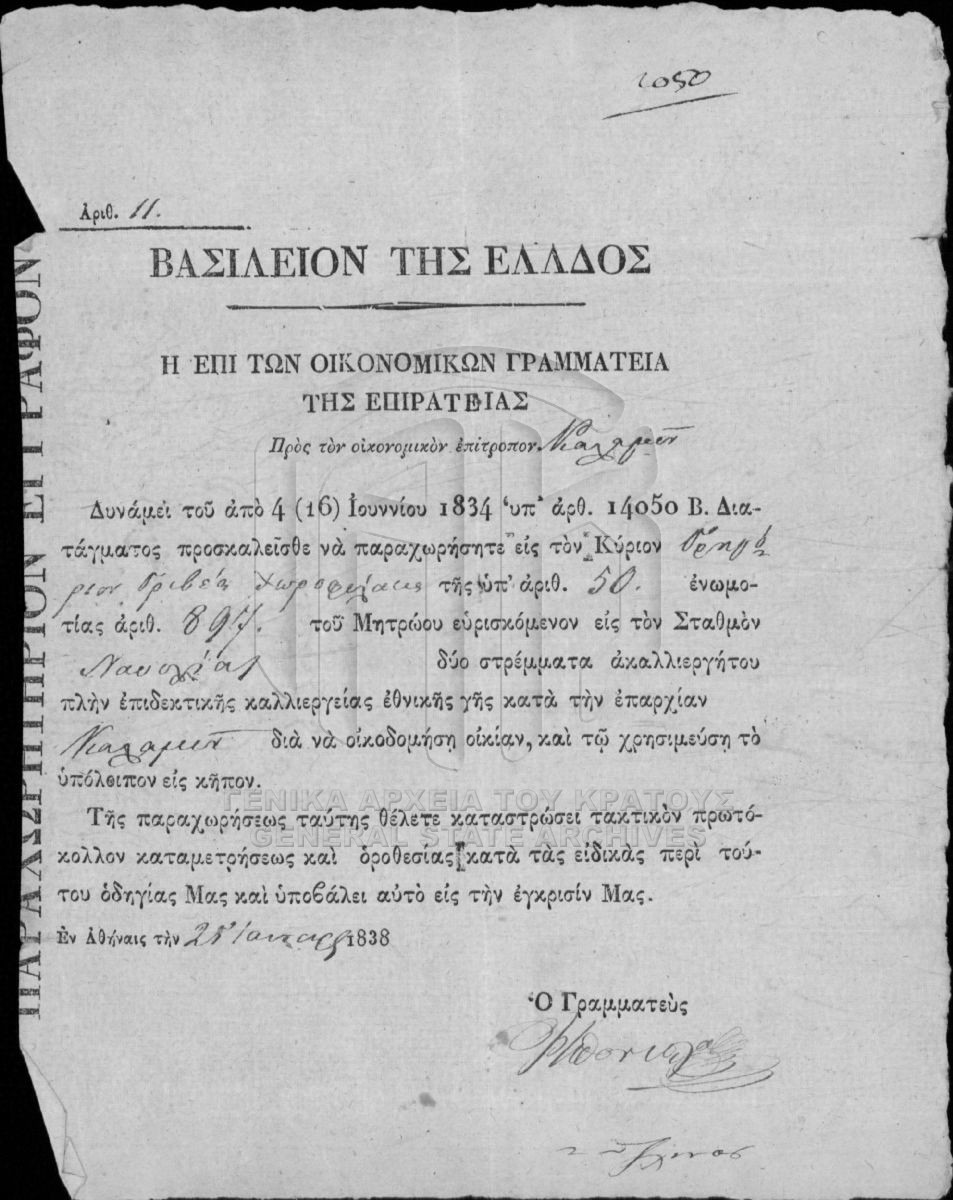 1050
Ἀριθ. 11.
ΒΑΣΙΛΕΙΟΝ ΤΗΣ ΕΛΛΑΔΟΣ
Η ΕΠΙ ΤΩΝ ΟΙΚΟΝΟΜΙΚΩΝ ΓΡΑΜΜΑΤΕΙΑ
ΤΗΣ ΕΠΙΡΑΤΕΙΑΣ
Πρὸς τὸν οἰκονομικὸν ἐπίτροπον Καλαμῶν
Δυνάμει τοῦ ἀπὸ 4 (16) Ἰουννίου 1834 ὑπ' ἀρθ. 14050 Β. Δια-
τάγματος προσκαλεῖσθε νὰ παραχωρήσητε εἰς τὸν Κύριον Γρηγό
ριον Γριβέα Χωροφύλακα τῆς ὑπ' ἀριθ. 50. ἐνωμο-
τίας ἀριθ. 897. τοῦ Μητρώου εὑρισκόμενον εἰς τὸν Σταθμὸν
Ναυπλίας δύο στρέμματα ἀκαλλιεργήτου
πλὴν ἐπιδεκτικῆς καλλιεργείας ἐθνικῆς γῆς κατὰ τὴν ἐπαρχίαν
Καλαμῶν διὰ νὰ οἰκοδομήση οἰκίαν, καὶ τῷ χρησιμεύση τὸ
ὑπόλοιπον εἰς κῆπον.
Τῆς παραχωρήσεως ταύτης θέλετε καταστρώσει τακτικὸν πρωτό-
κολλον καταμετρήσεως καὶ ὁροθεσίας κατὰ τὰς εἰδικὰς περὶ τού-
του ὁδηγίας Μας καὶ ὑποβάλει αὐτὸ εἰς τὴν ἔγκρισίν Μας.
Ἐν Ἀθήναις τὴν 25 Ἰανουαρ 1838
Ὁ Γραμματεὺς
ΠΑΡΑΧΩΡΗΤΗΡΙΟΝ ΕΓΓΡΑΦΟΝ
ΓΕΝΙΚΑ ΑΡΧΕΙΑ ΤΟΥ ΚΡΑΤΟΥΣ
GENERAL STATE ARCHIVES